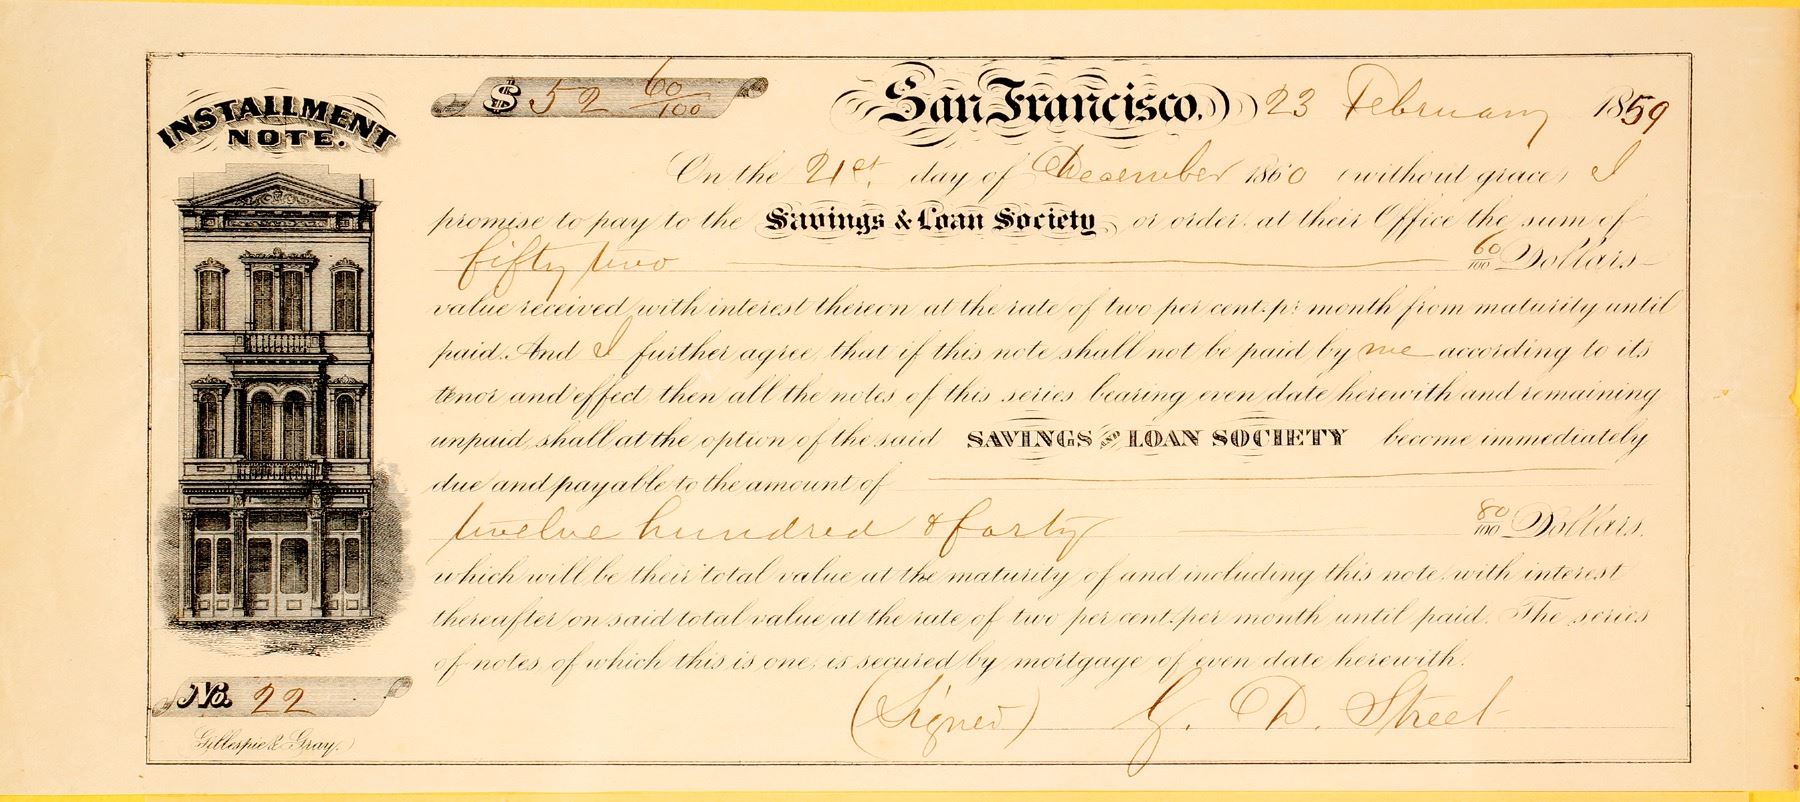 INSTALLMENT
NOTE.
$ 52 60/100
San Francisco. 23 February 1859
On the 21st. day of December 1860 (without grace) I
promise to pay to the Savings & Loan Society or order at their Office the sum of
fifty two 60/100 Dollars
value received with interest thereon at the rate of two per cent. pr month from maturity until
paid. And I further agree, that if this note shall not be paid by me according to its
tenor and effect then all the notes of this series bearing even date herewith and remaining
unpaid, shall at the option of the said SAVINGS AND LOAN SOCIETY become immediately
due and payable to the amount of
twelve hundred & forty 80/100 Dollars.
which will be their total value at the maturity of and including this note, with interest
thereafter on said total value at the rate of two per cent. per month until paid. The series
of notes of which this is one, is secured by mortgage of even date herewith.
(Signed) G. D. Street
No. 22
Gillespie & Gray.